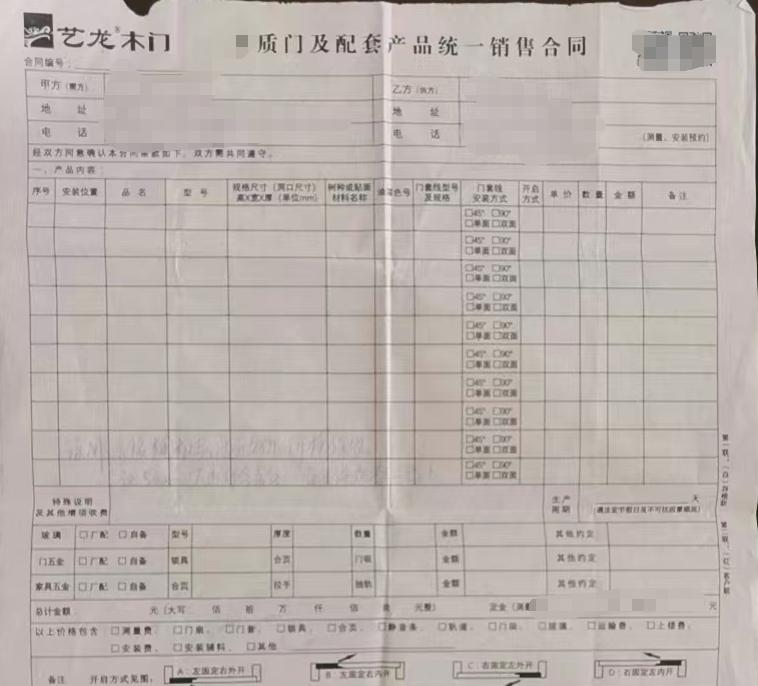 艺龙®木门
质门及配套产品统一销售合同
合同编号：
甲方（需方） 乙方（供方）
地 址 地 址
电 话 电 话 （测量、安装预约）
经双方同意确认本合同条款如下，双方需共同遵守。
一、产品内容：
序号 安装位置 品 名 型 号 规格尺寸（洞口尺寸）高X宽X厚（单位mm） 树种或贴面材料名称 油漆色号 门套线型号及规格 门套线安装方式 开启方式 单 价 数 量 金 额 备 注
□45° □90°
□单面 □双面
□45° □90°
□单面 □双面
□45° □90°
□单面 □双面
□45° □90°
□单面 □双面
□45° □90°
□单面 □双面
□45° □90°
□单面 □双面
□45° □90°
□单面 □双面
□45° □90°
□单面 □双面
□45° □90°
□单面 □双面
□45° □90°
□单面 □双面
特殊说明及其他增项收费 生产周期 天
（遇法定节假日及不可抗因素顺延）
玻璃 □厂配 □自备 型号 厚度 数量 金额 其他约定
门五金 □厂配 □自备 锁具 合页 门吸 金额 其他约定
家具五金 □厂配 □自备 合页 拉手 抽轨 金额 其他约定
总计金额 元（大写 佰 拾 万 仟 佰 元整） 定金（测量 元
以上价格包含 □测量费、 □门扇、 □门套、 □锁具、 □合页、 □静音条、 □轨道、 □门吸、 □玻璃、 □运输费、 □上楼费、
□安装费、 □安装辅料、 □其他
备注 开启方式见图： A：左固定右外开 B：左固定右内开 C：右固定左外开 D：右固定左内开